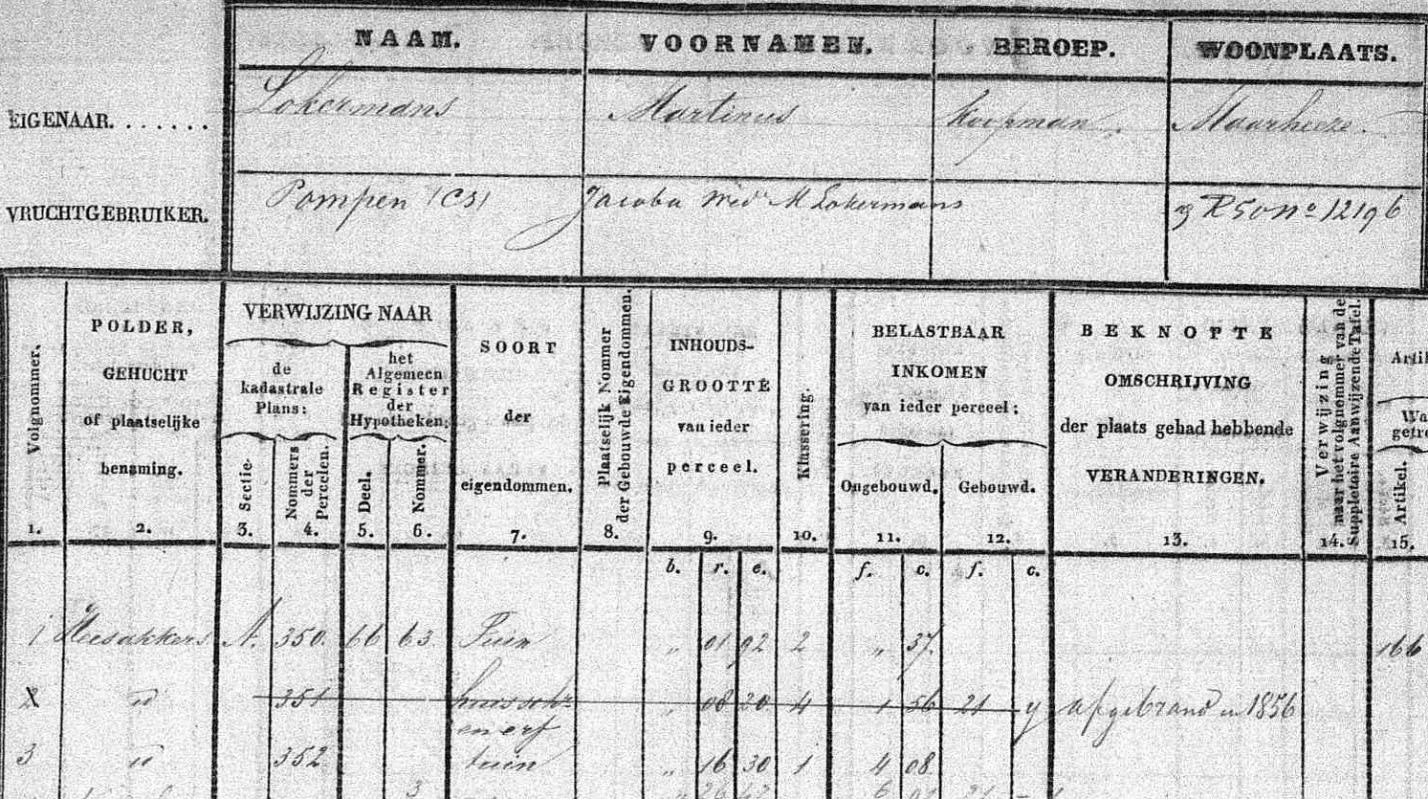 NAAM. VOORNAMEN. BEROEP. WOONPLAATS.
EIGENAAR. . . . . . . Lokermans Martinus Koopman. Maarheeze.
VRUCHTGEBRUIKER. Pompen (CS) Jacoba Wed M Lokermans R50 no 12196
Volgnommer. 1.
POLDER,
GEHUCHT
of plaatselijke
benaming.
2.
VERWIJZING NAAR
de
kadastrale
Plans:
Sectie. 3.
Nommers
der
Percelen.
4.
het
Algemeen
Register
der
Hypotheken;
Deel. 5.
Nommer. 6.
SOORT
der
eigendommen.
7.
Plaatselijk Nommer
der Gebouwde Eigendommen.
8.
INHOUDS-
GROOTTE
van ieder
perceel.
9.
Klassering.
10.
BELASTBAAR
INKOMEN
van ieder perceel;
Ongebouwd. Gebouwd.
11. 12.
BEKNOPTE
OMSCHRIJVING
der plaats gehad hebbende
VERANDERINGEN.
13.
Verwijzing
naar het volgnommer van de
Suppletoire Aanwijzende Tafel.
14.
Artikel.
15.
b. r. e. f. c. f. c.
1 Heesakkers A. 350. 66 63. Tuin " 01 92 2 " 37. 166
2 id 351 huis sch: " 08 30 4 1 56 21 " afgebrand in 1856
en erf
3 id 352 tuin " 16 30 1 4 08
3